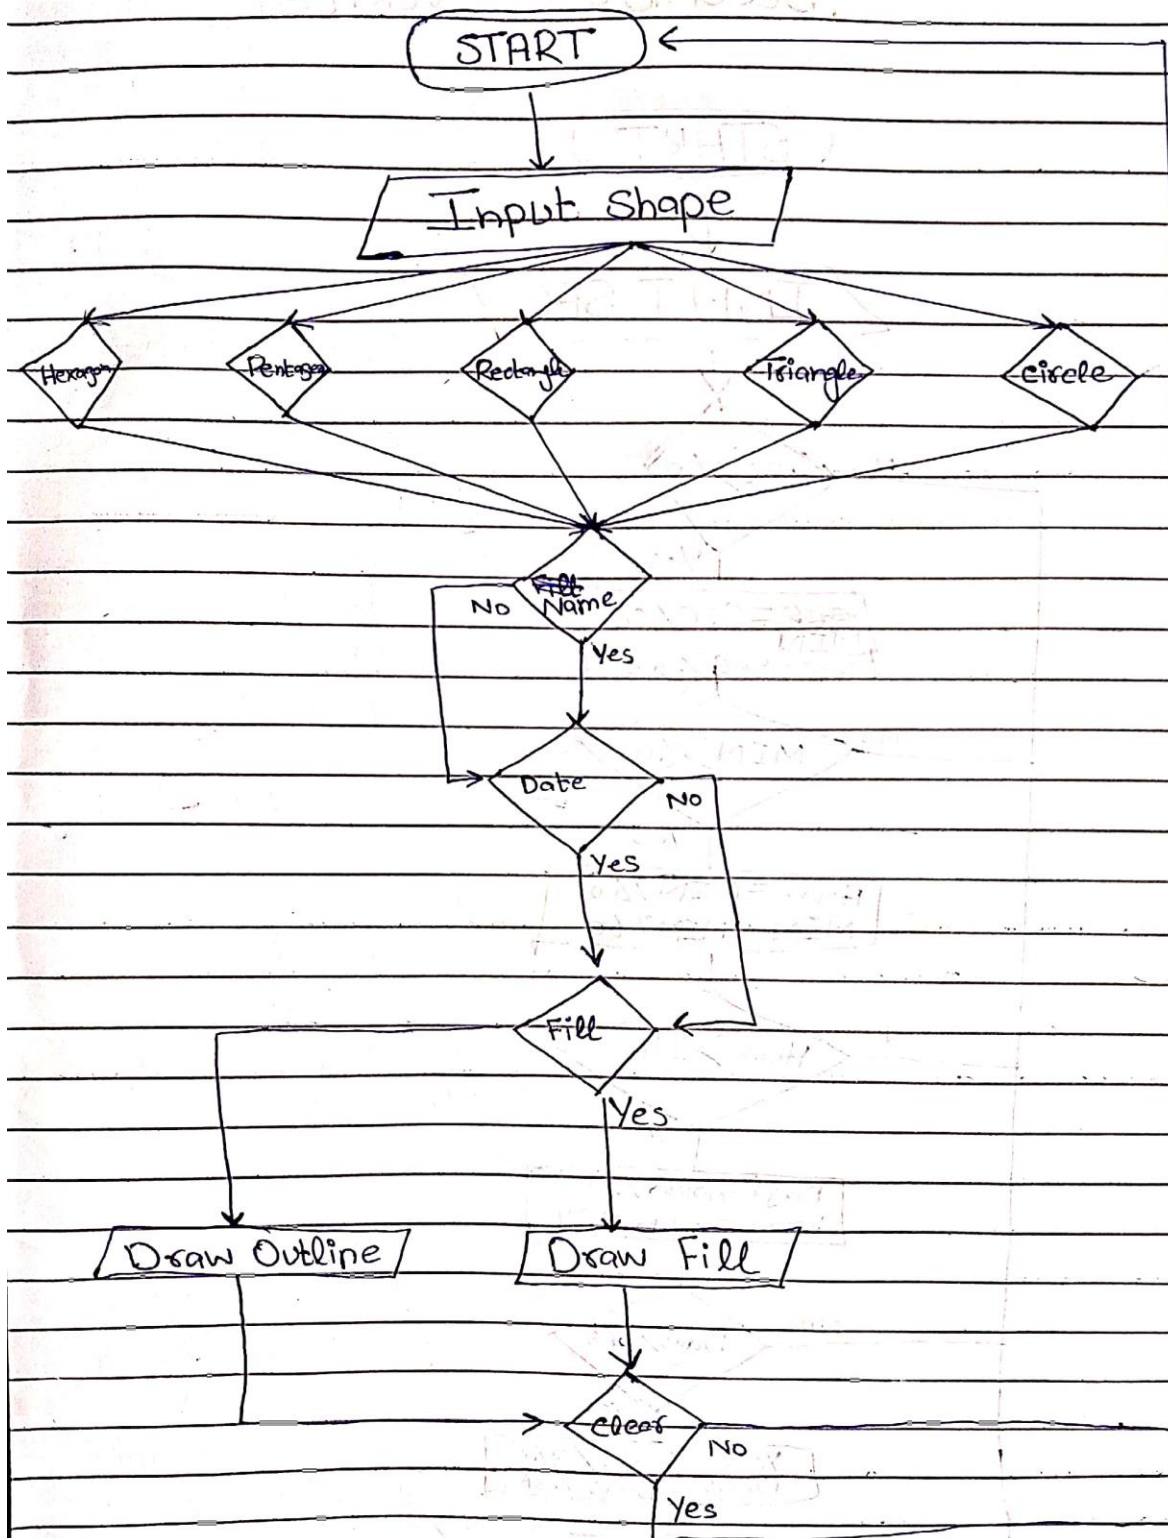 START
Input Shape
Hexagon
Pentagon
Rectangle
Triangle
Circle
Name
No
Yes
Date
No
Yes
Fill
Yes
Draw Outline
Draw Fill
Clear
No
Yes